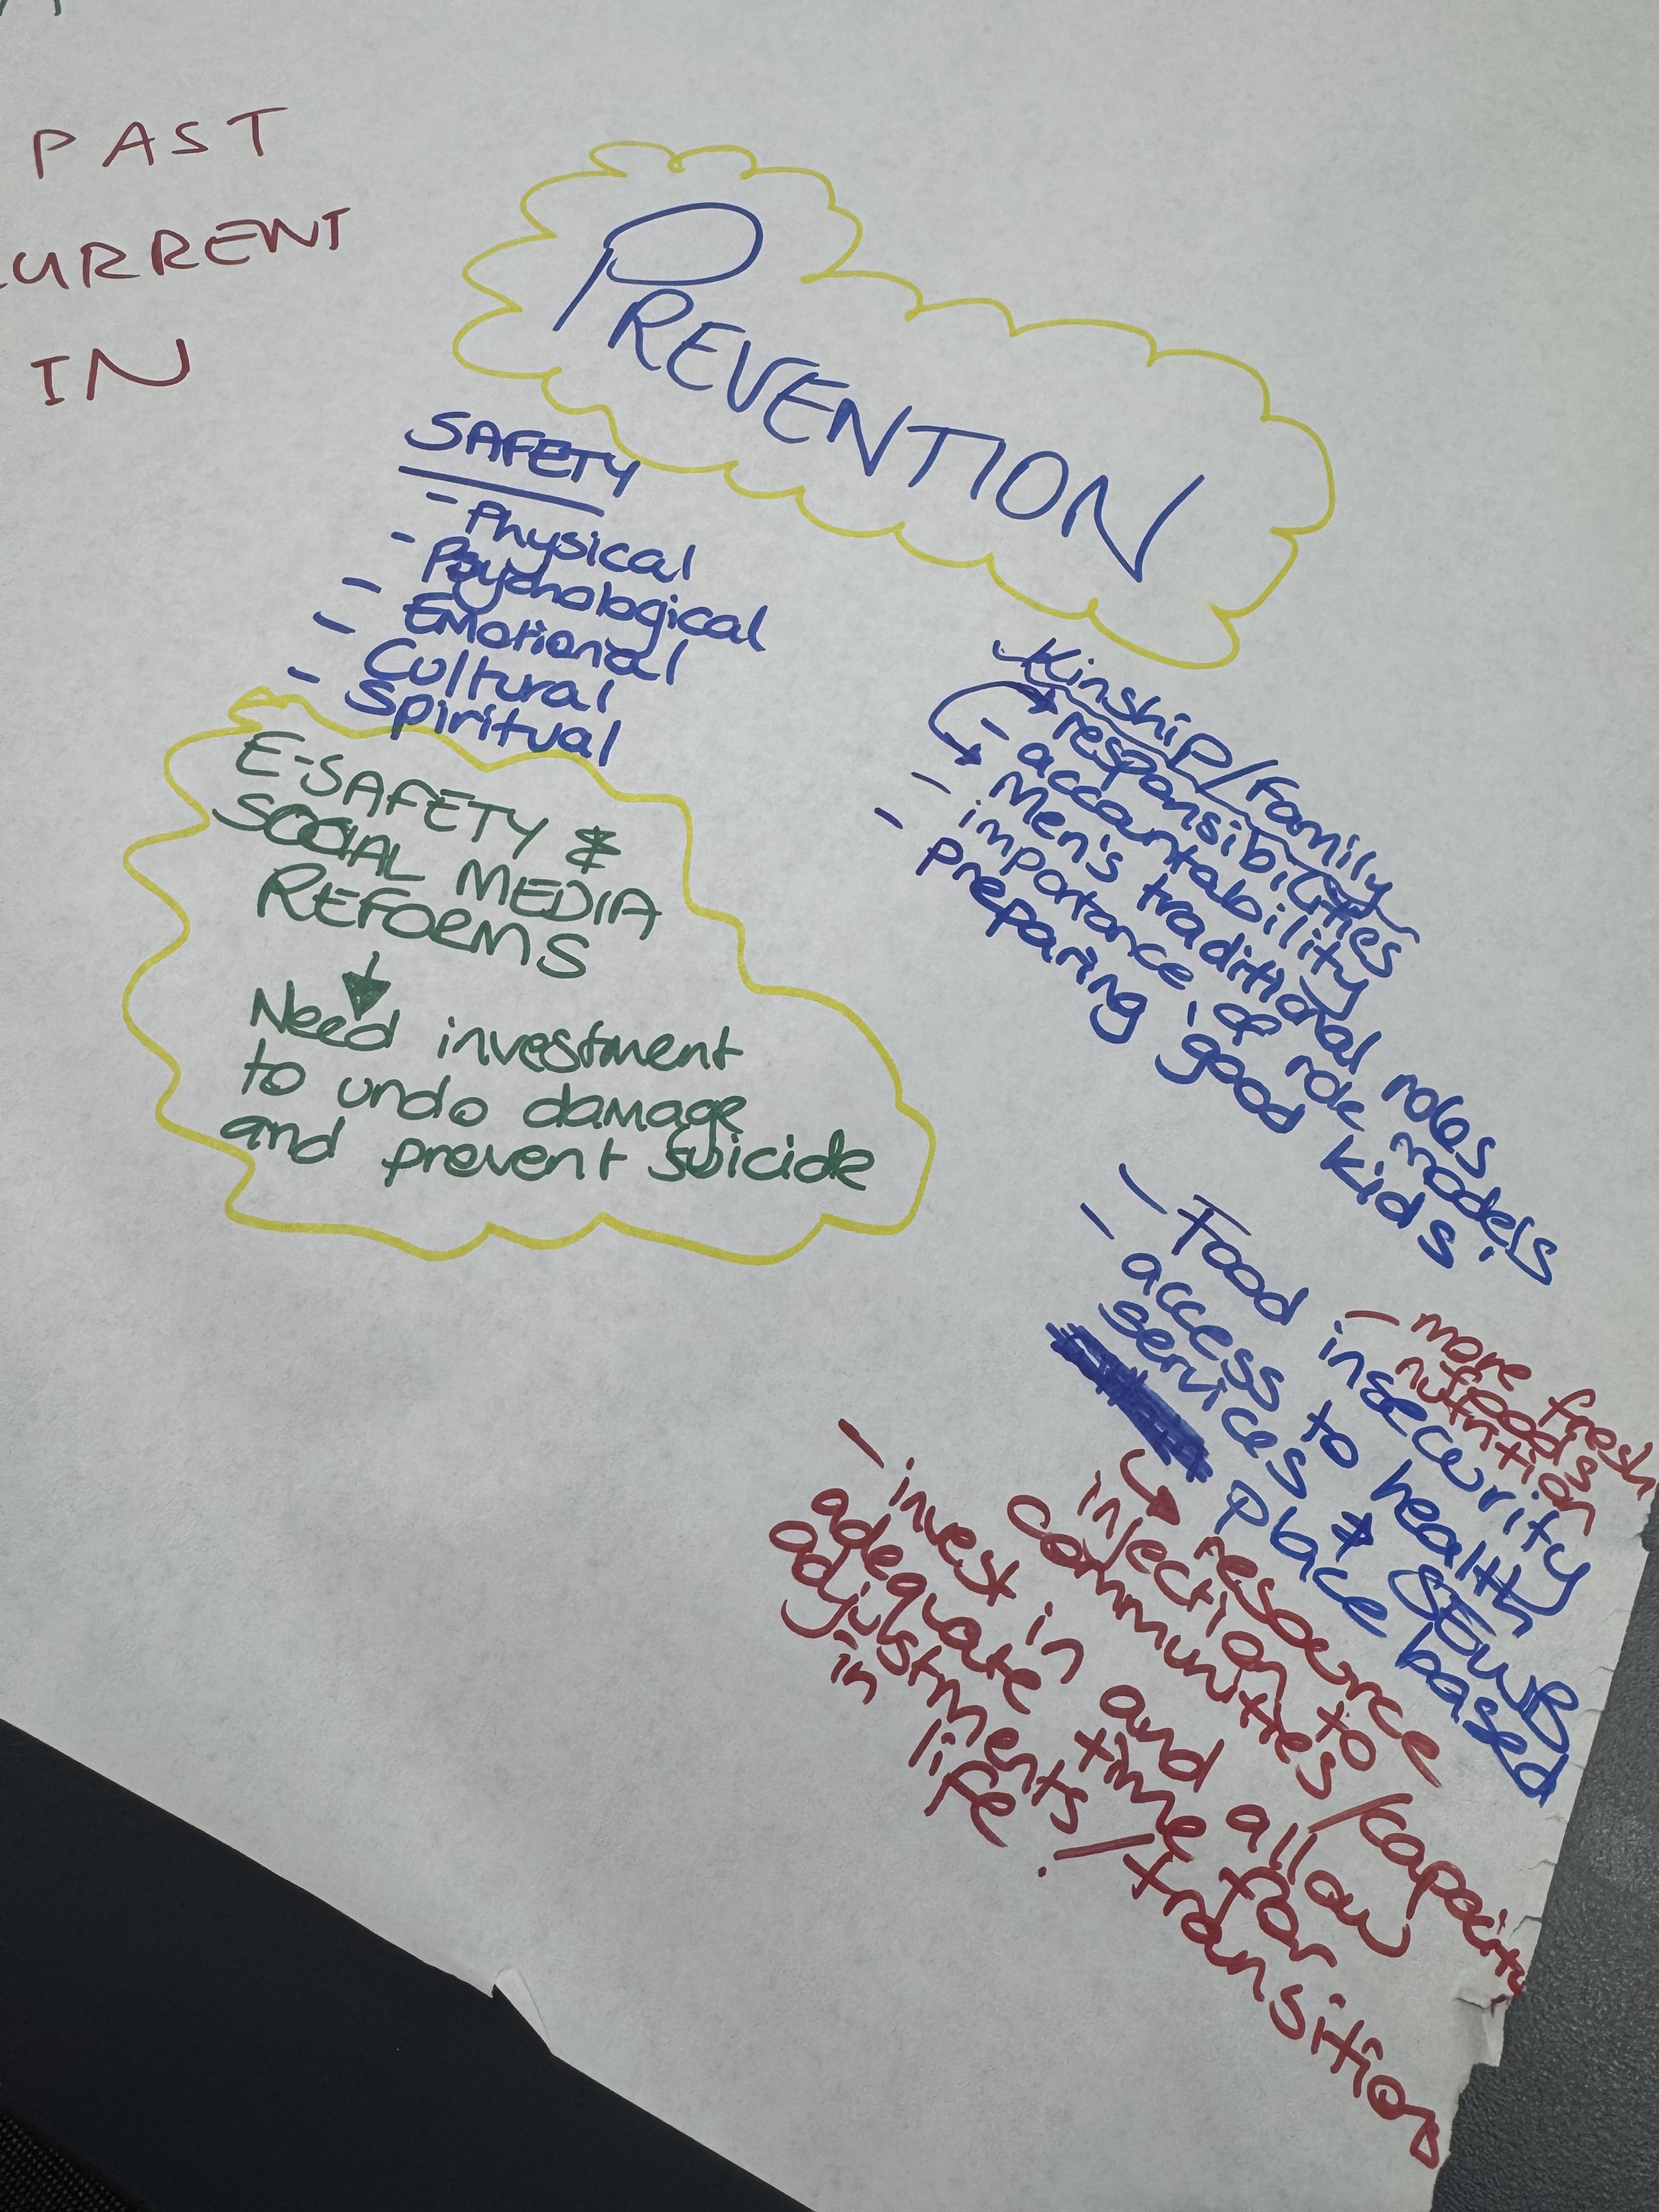 PAST
CURRENT
IN
PREVENTION
SAFETY
- Physical
- Psychological
- Emotional
- Cultural
- Spiritual
E-SAFETY &
SOCIAL MEDIA
REFORMS
Need investment
to undo damage
and prevent suicide
- Kinship/Family
responsibilities
- accountability
Men's traditional roles
- importance of role models
- preparing good kids
- Food insecurity
- more fresh
foods
nutrition
- access to health & SEWB
services place based
resource
injection to
communities/capacity
- invest in and allow
adequate time for
adjustments/transition
in life.